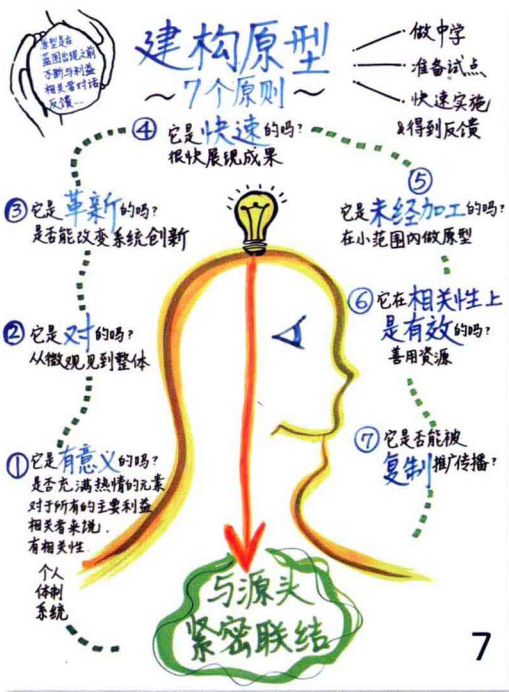 原型是在
蓝图出现之前
不断与利益
相关者对话
反馈...
建构原型
～7个原则～
做中学
准备试点
快速实施
&得到反馈
④它是快速的吗?
很快展现成果
③它是革新的吗?
是否能改变系统创新
⑤
它是未经加工的吗?
在小范围内做原型
②它是对的吗?
从微观见到整体
⑥它在相关性上
是有效的吗?
善用资源
①它是有意义的吗?
是否充满热情的元素
对于所有的主要利益
相关者来说.
有相关性.
个人
体制
系统
⑦它是否能被
复制推广传播?
与源头
紧密联结
7